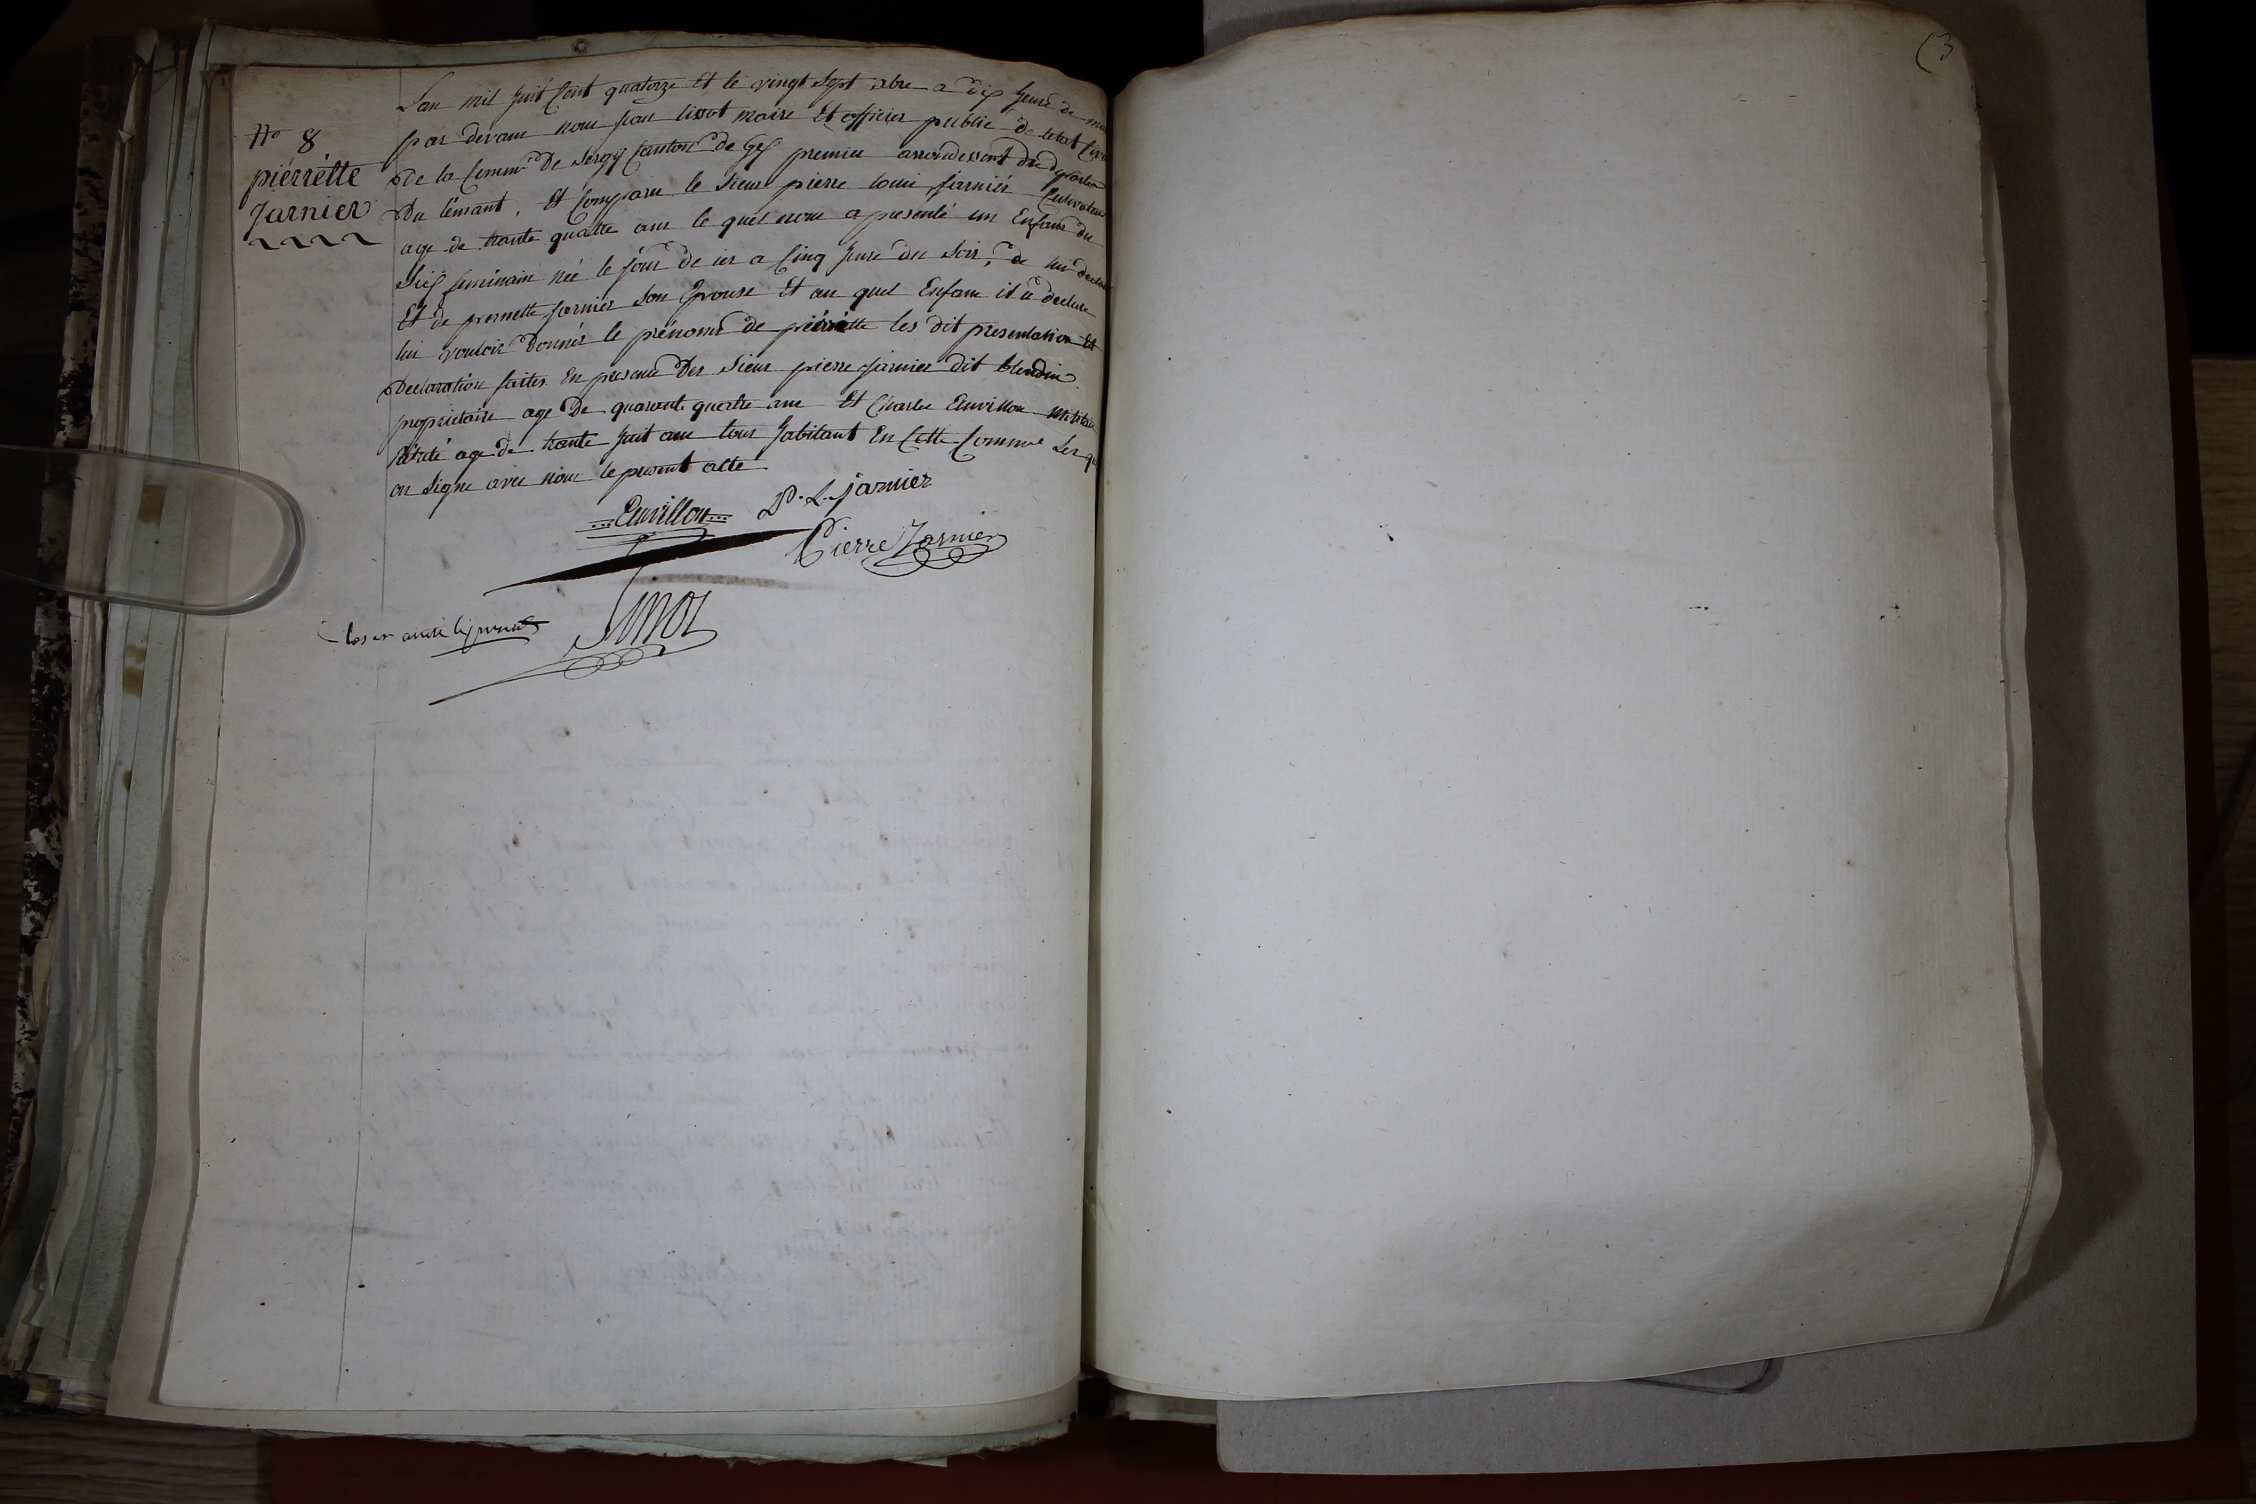 (3
N° 8
pierrette
Jarnier
Lan mil huit Cent quatorze Et le vingt Sept xbre a dix heure de
par devant nous jean maire Et officier public de letat Civil
De la Comm^e De Sergy Canton de Gex premier arrondissent du
Du lémant. Et Comparu le Sieur pierre louis jarnier Cultivateur
age de trante quattre ans le quel nous a presenté un Enfant du
Six feminain née le jour de ier a Cinq hure du Soir, de lui
Et de jarnier Son Epouse Et au quel Enfant il a declare
lui vouloir Donner le prénoms de pierrette les dit presentation Et
Declaration faites En presence Des Sieur pierre jarnier dit blondin
propriétaire age De quarante quatre ans Et Charles Cluvillou Militaire
Retrité age de trante huit ans tous habitant En Cette Comm^e Les
on Signe avec nous le present acte
Cluvillou P. L. jarnier
Pierre Jarnier